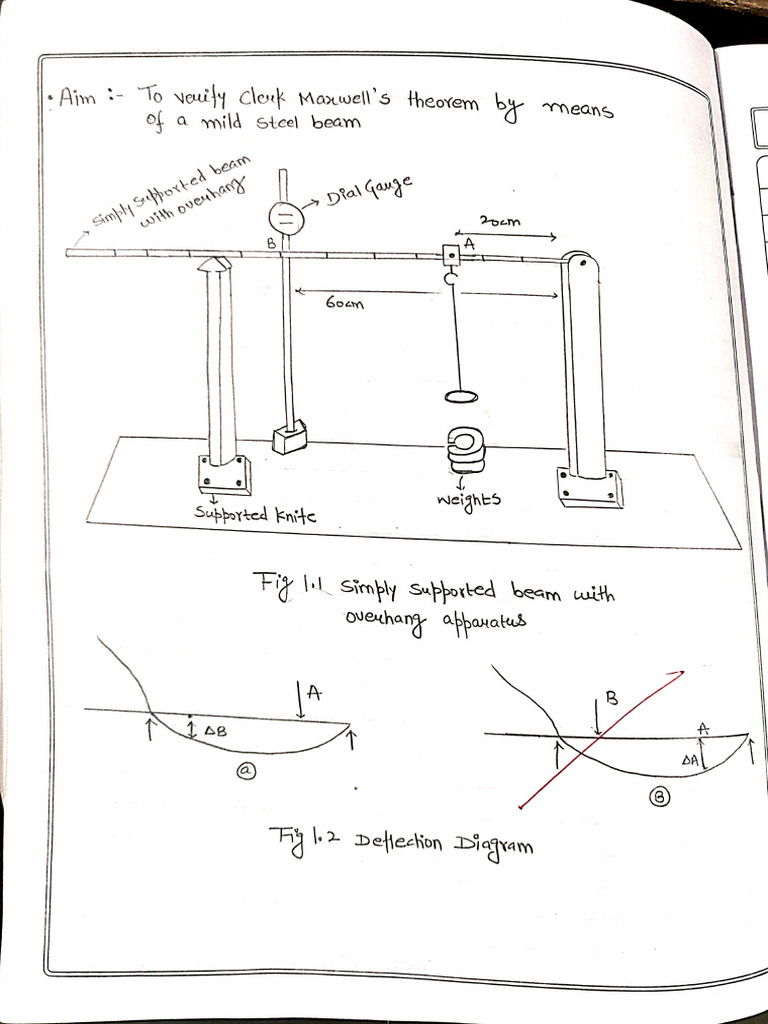 • Aim :- To verify Clerk Maxwell's theorem by means
of a mild steel beam
Simply supported beam
with overhang
Dial Gauge
20cm
B
A
60cm
Supported Knife
weights
Fig 1.1 Simply supported beam with
overhang apparatus
A
ΔB
a
B
A
ΔA
B
Fig 1.2 Deflection Diagram